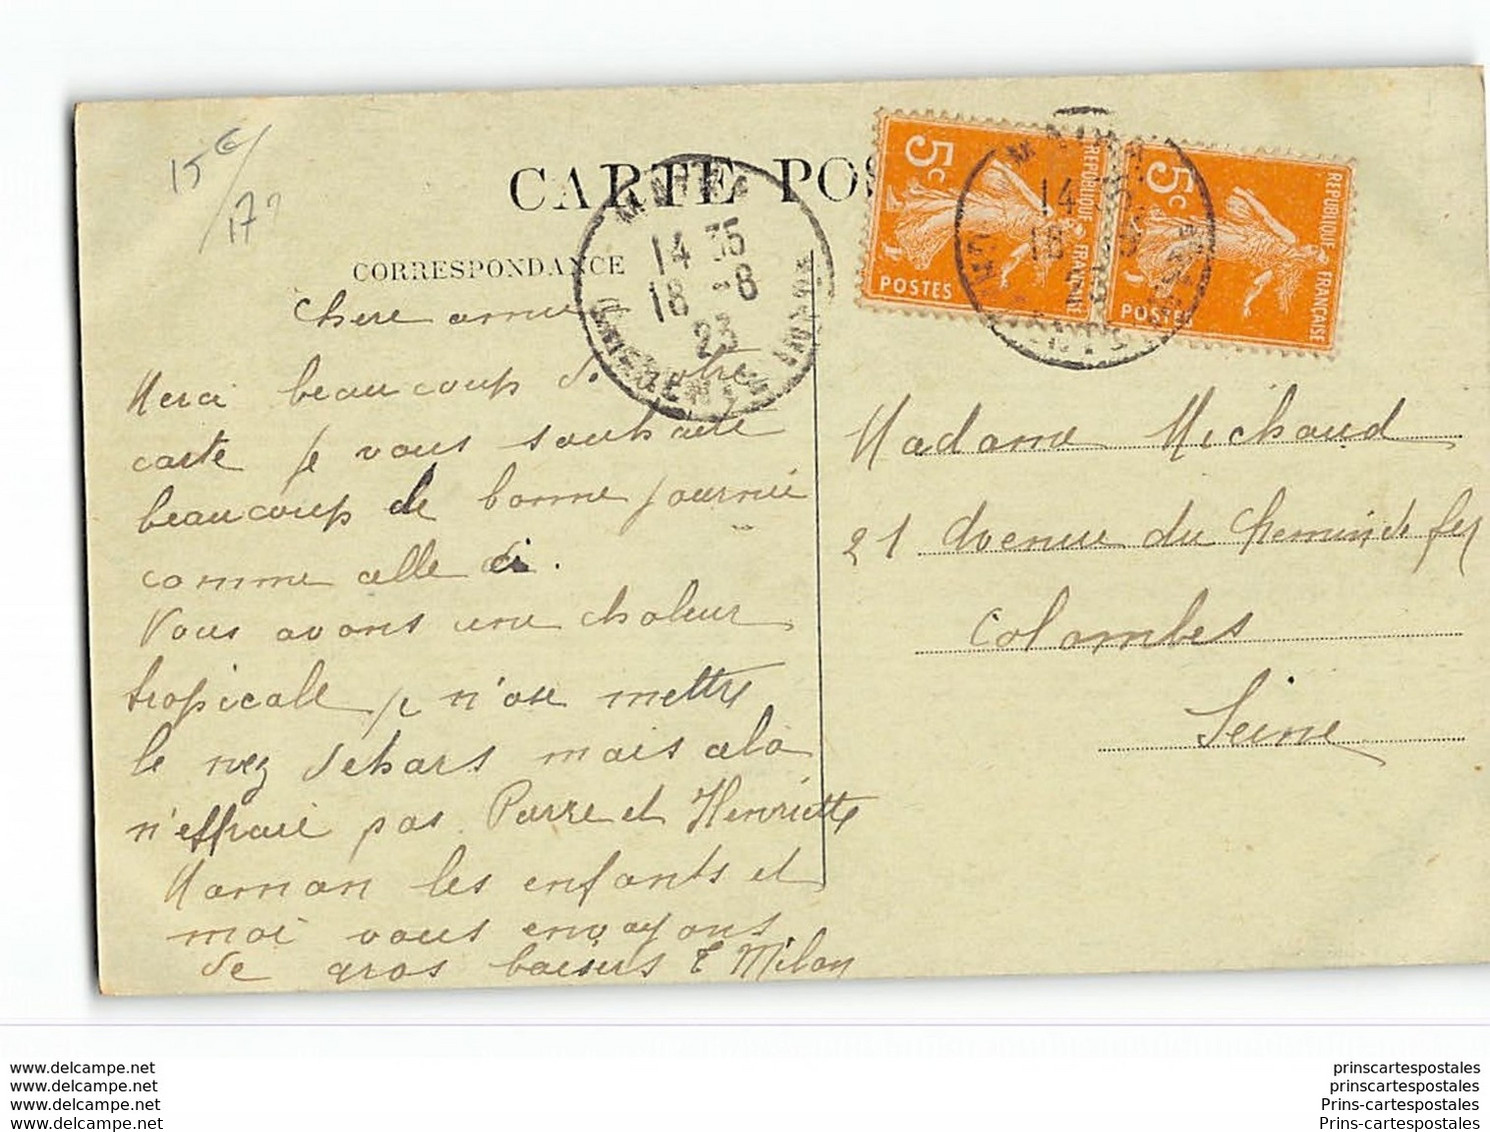 15€/
17
CARTE POS
CORRESPONDANCE
14 35
18 -8
23
5c
POSTES
REPUBLIQUE FRANÇAISE
14 35
18 -8
5c
POSTES
REPUBLIQUE FRANÇAISE
Chere amie
Merci beaucoup de votre
carte je vous souhaite
beaucoup de bonne journée
comme celle ci.
Nous avons une chaleur
tropicale je n'ose mettre
le nez dehors mais cela
n'effraie pas Pierre et Henriette
Maman les enfants et
moi vous envoyons
de gros baisers E Milon
Madame Michaud
21 Avenue du Chemin de fer
Colombes
Seine
www.delcampe.net
www.delcampe.net
www.delcampe.net
www.delcampe.net
prinscartespostales
prinscartespostales
Prins-cartespostales
Prins-cartespostales